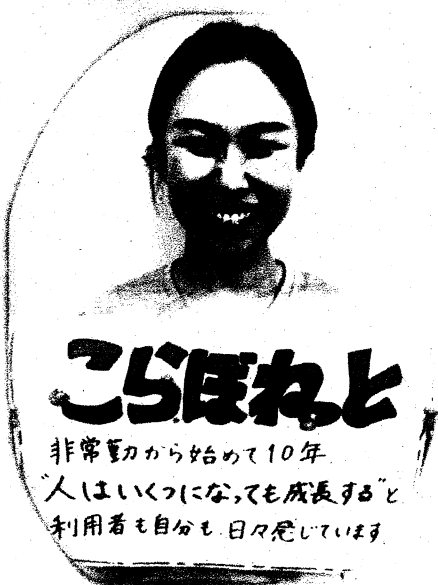 こらぼねっと
非常勤から始めて10年
"人はいくつになっても成長する"と
利用者も自分も日々感じています